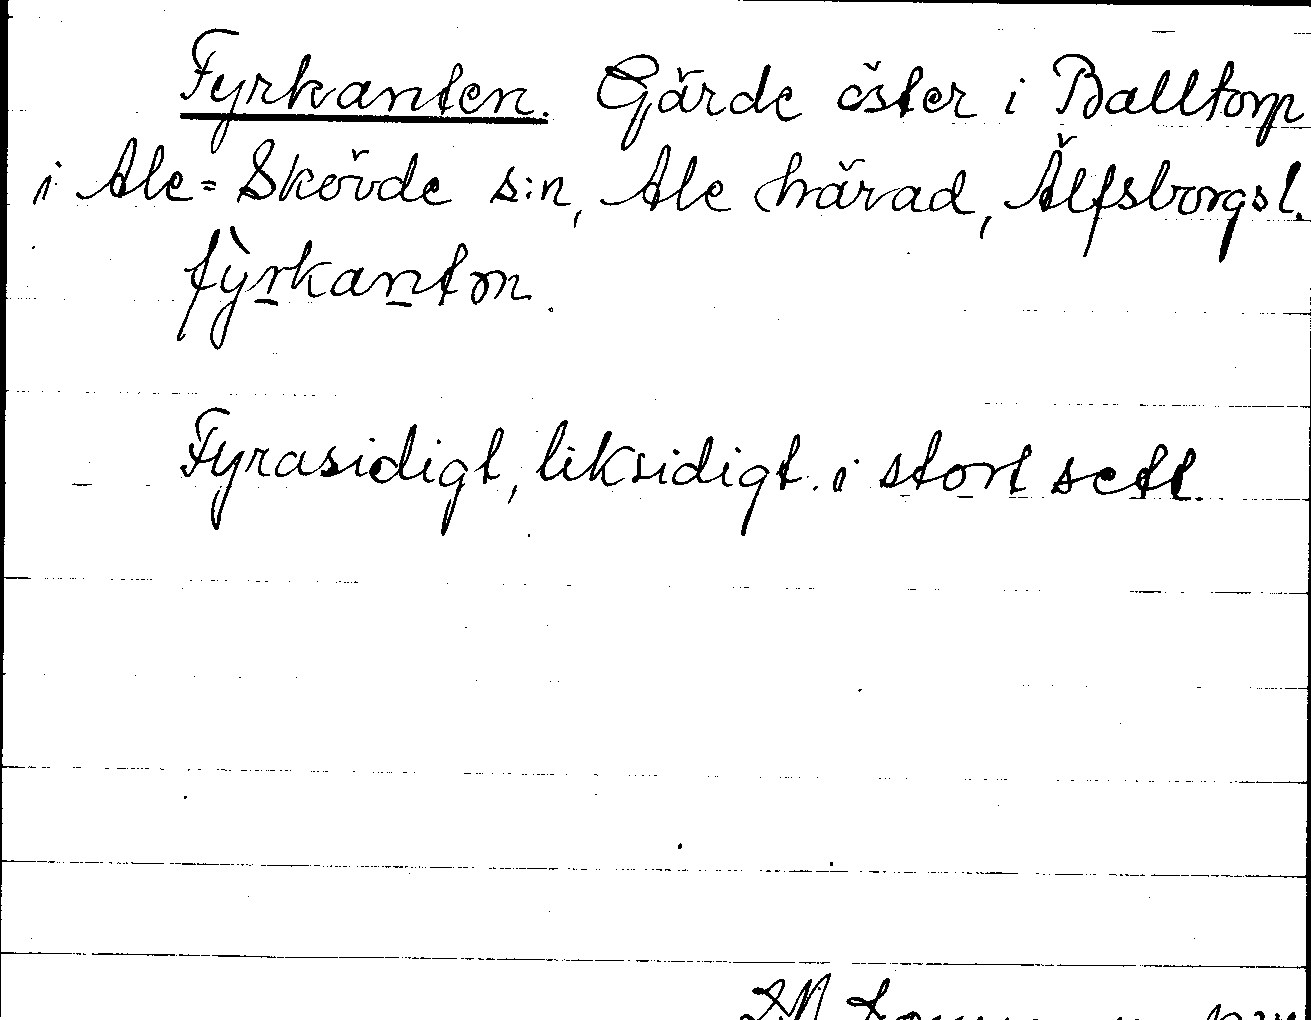 Fyrkanten. Gärde öster i Balltorp
i Ale-Skövde s:n, Ale härad, Älfsborgs l.
fỳrkantən.
Fyrasidigt, liksidigt i stort sett.